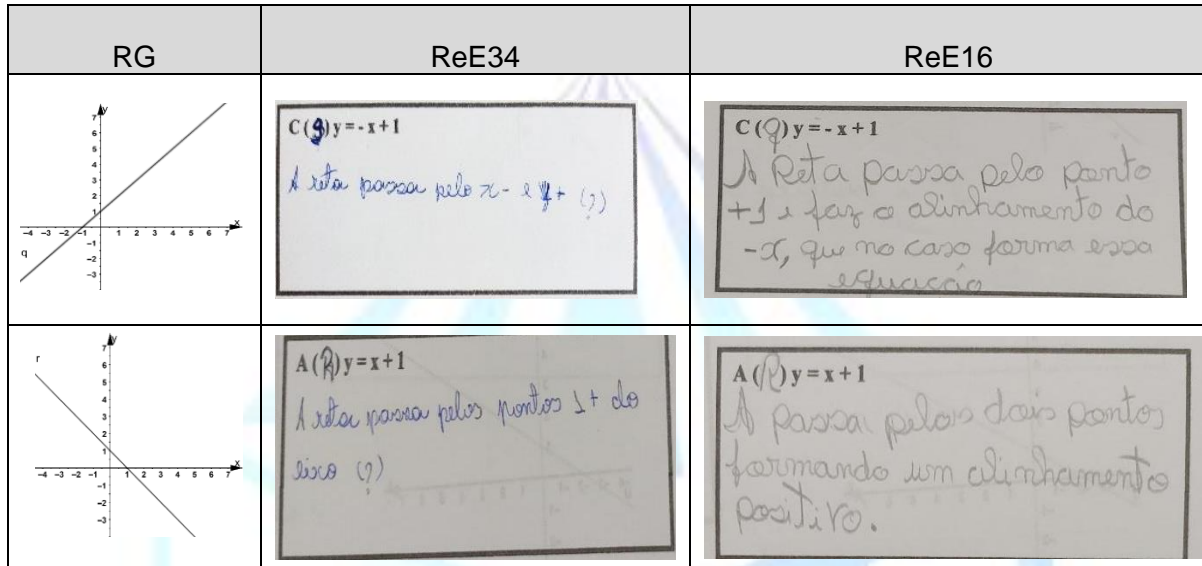 RG
ReE34
ReE16
y
7
6
5
4
3
2
1
-4 -3 -2 -1 1 2 3 4 5 6 7 x
-1
-2
-3
q
C (q) y = - x + 1
A reta passa pelo x- e y+ (?)
C (q) y = - x + 1
A Reta passa pelo ponto
+1 e faz o alinhamento do
-x, que no caso forma essa
equação
y
r
7
6
5
4
3
2
1
-4 -3 -2 -1 1 2 3 4 5 6 7 x
-1
-2
-3
A (R) y = x + 1
A reta passa pelos pontos 1+ do
eixo (?)
A (R) y = x + 1
A passa pelos dois pontos
formando um alinhamento
positivo.